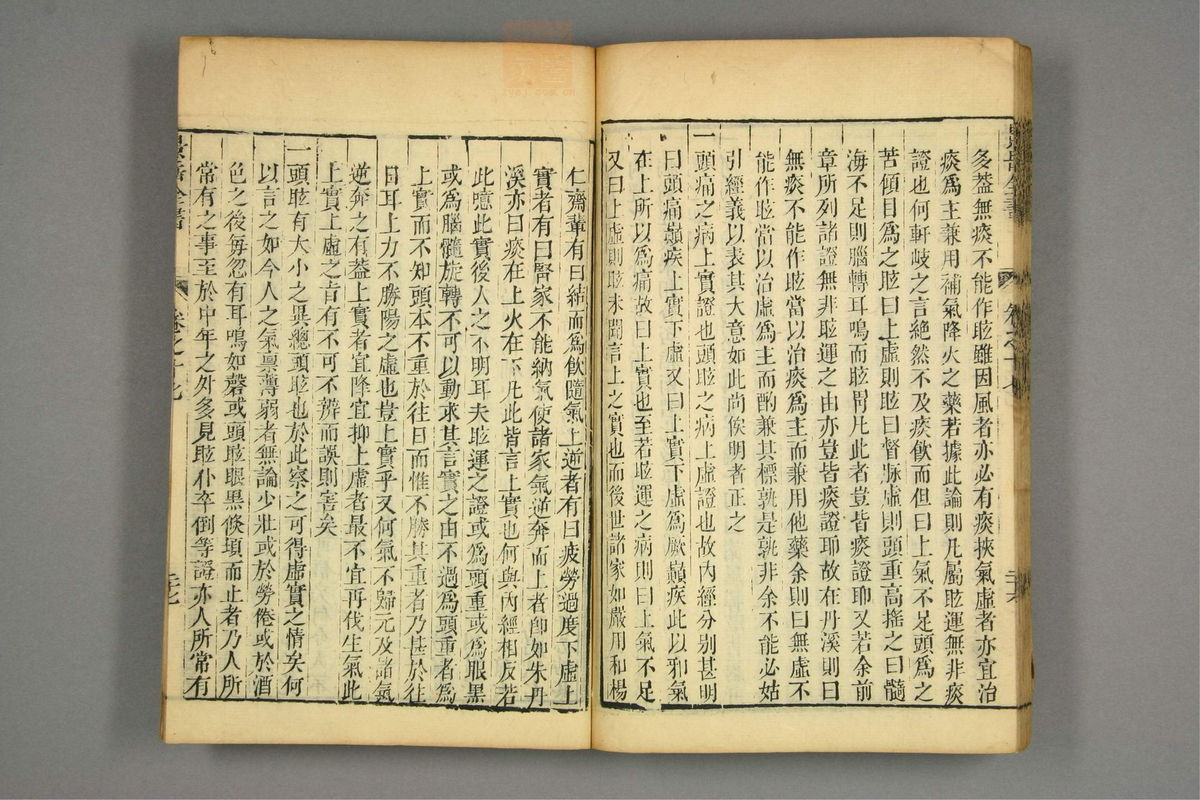 多葢無痰不能作眩雖因風者亦必有痰挾氣虛者亦宜治
痰爲主兼用補氣降火之藥若據此論則凡屬眩運無非痰
證也何軒岐之言絕然不及痰飮而但曰上氣不足頭爲之
苦傾目爲之眩曰上虛則眩曰督脉虛則頭重高搖之曰髓
海不足則腦轉耳鳴而眩冐凡此者豈皆痰證耶又若余前
章所列諸證無非眩運之由亦豈皆痰證耶故在丹溪則曰
無痰不能作眩當以治痰爲主而兼用他藥余則曰無虛不
能作眩當以治虛爲主而酌兼其標孰是孰非余不能必姑
引經義以表其大意如此尚俟明者正之
一頭痛之病上實證也頭眩之病上虛證也故內經分別甚明
曰頭痛巔疾上實下虛又曰上實下虛爲厥巔疾此以邪氣
在上所以爲痛故曰上實也至若眩運之病則曰上氣不足
又曰上虛則眩未聞言上之實也而後世諸家如嚴用和楊
仁齋輩有曰結而爲飮隨氣上逆者有曰疲勞過度下虛上
實者有曰腎家不能納氣使諸家氣逆奔而上者卽如朱丹
溪亦曰痰在上火在下凡此皆言上實也何與內經相反若
此噫此實後人之不明耳夫眩運之證或爲頭重或爲眼黑
或爲腦髓旋轉不可以動求其言實之由不過爲頭重者爲
上實而不知頭本不重於往日而惟不勝其重者乃甚於往
日耳上力不勝陽之虛也豈上實乎又何氣不歸元及諸氣
逆奔之有葢上實者宜降宜抑上虛者最不宜再伐生氣此
上實上虛之旨有不可不辨而誤則害矣
一頭眩有大小之異總頭眩也於此察之可得虛實之情矣何
以言之如今人之氣禀薄弱者無論少壯或於勞倦或於酒
色之後每忽有耳鳴如磬或頭眩眼黑倐頃而止者乃人所
常有之事至於中年之外多見眩仆卒倒等證亦人所常有